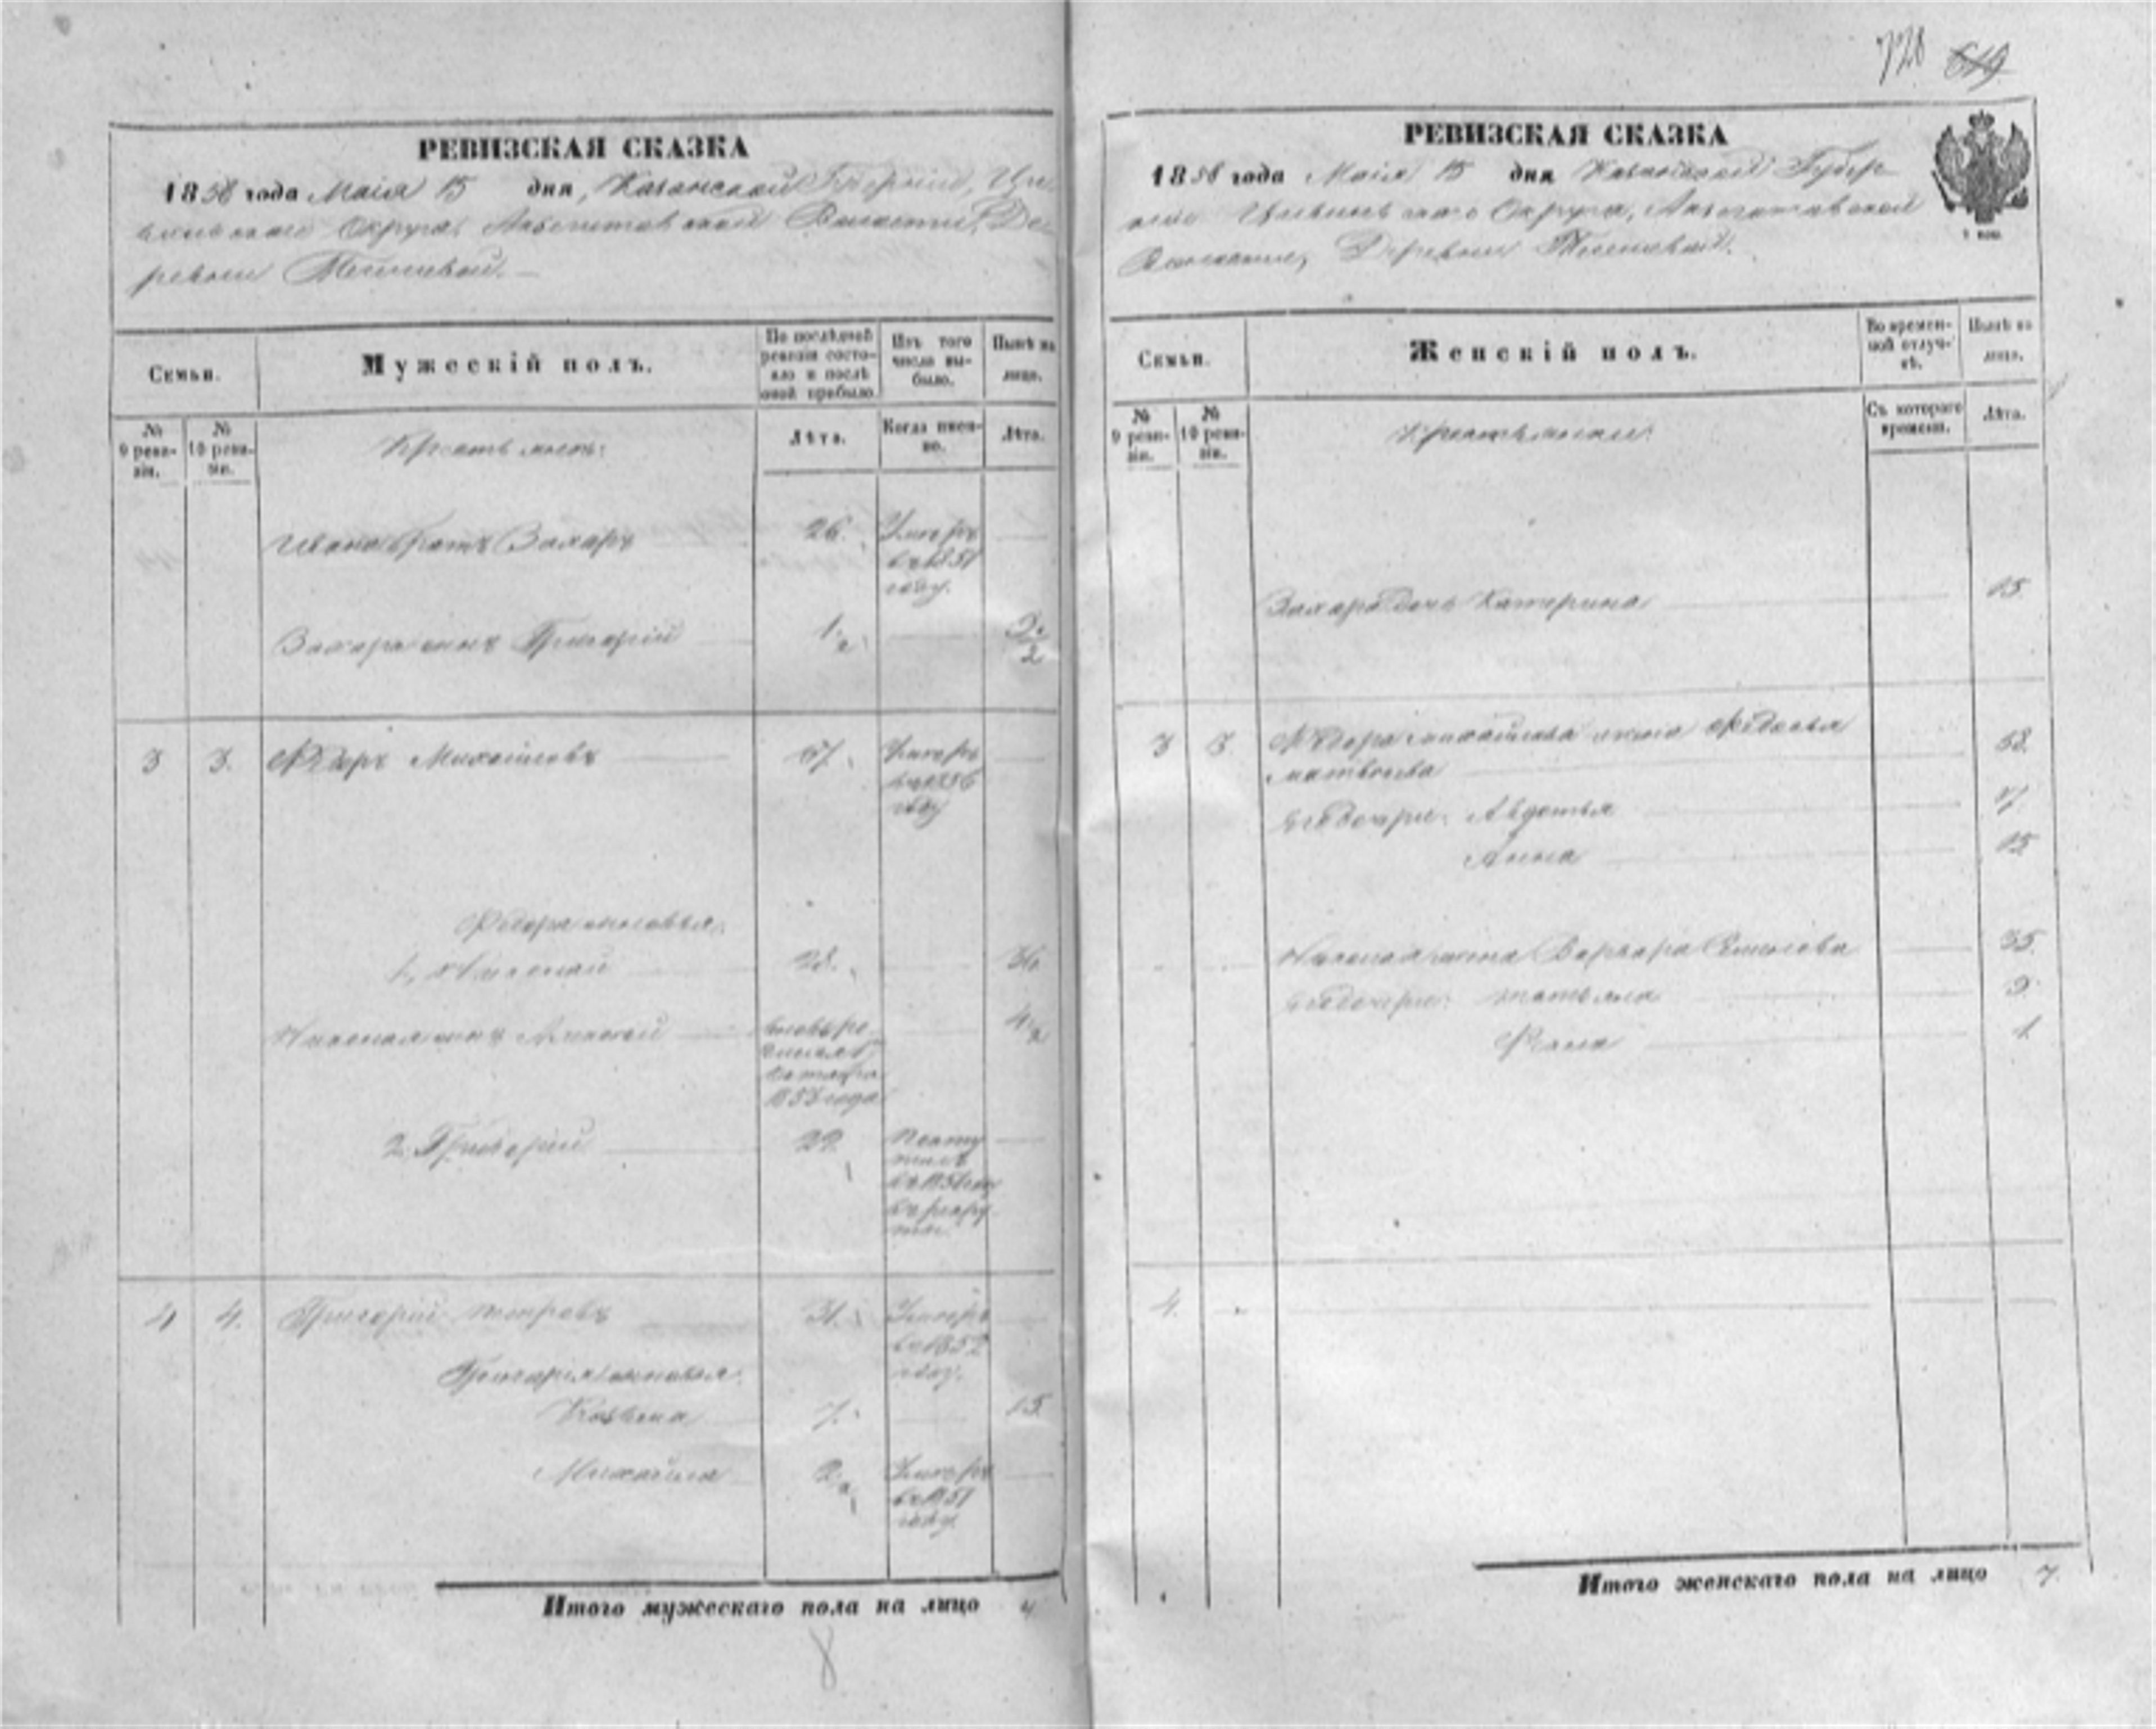 728 619
РЕВИЗСКАЯ СКАЗКА
1858 года Маія 15 дня, Казанской Губерніи, Ци
вильскаго Округа, Волости, Де
ревни
Семьи.
Мужескій полъ.
По послѣдней ревизіи состояло и послѣ оной прибыло.
Изъ того числа выбыло.
Нынѣ на лицо.
№ 9 ревизіи.
№ 10 ревизіи.
Крестьянъ:
Лѣта.
Когда именно.
Лѣта.
Ивана братъ Захаръ 26. Умеръ
въ 1851
году.
Захара сынъ Григорій 1/2 9 1/2
3 3. Ѳедоръ Михайловъ 57. Умеръ
въ 1856
году
Ѳедора сыновья:
1, Николай 28. 36
Николая сынъ Алексей вновь ро 4/2
2. Григорій 22. Посту
пилъ
въ рекру
ты.
4 4. Григорій Петровъ 31. Умеръ
въ 1852
году.
Григорья сыновья:
Козьма 7. 15
Михайла 2 Умеръ
въ 1851
году.
Итого мужескаго пола на лицо 4
8
РЕВИЗСКАЯ СКАЗКА
1858 года Маія 15 дня Казанской Губер
ніи Цивильскаго Округа,
Волости, Деревни
Семьи.
Женскій полъ.
Во временной отлучкѣ.
Нынѣ на лицо.
№ 9 ревизіи.
№ 10 ревизіи.
Съ котораго времени.
Лѣта.
Захара дочь Катерина 15
3 3. Ѳедора Михайлова жена Ѳедосья
Матвѣева 58.
его дочери: Авдотья 17
Анна 15
Николая жена Варвара Семенова 35.
его дочери: Татьяна 9
1
4.
Итого женскаго пола на лицо 7.